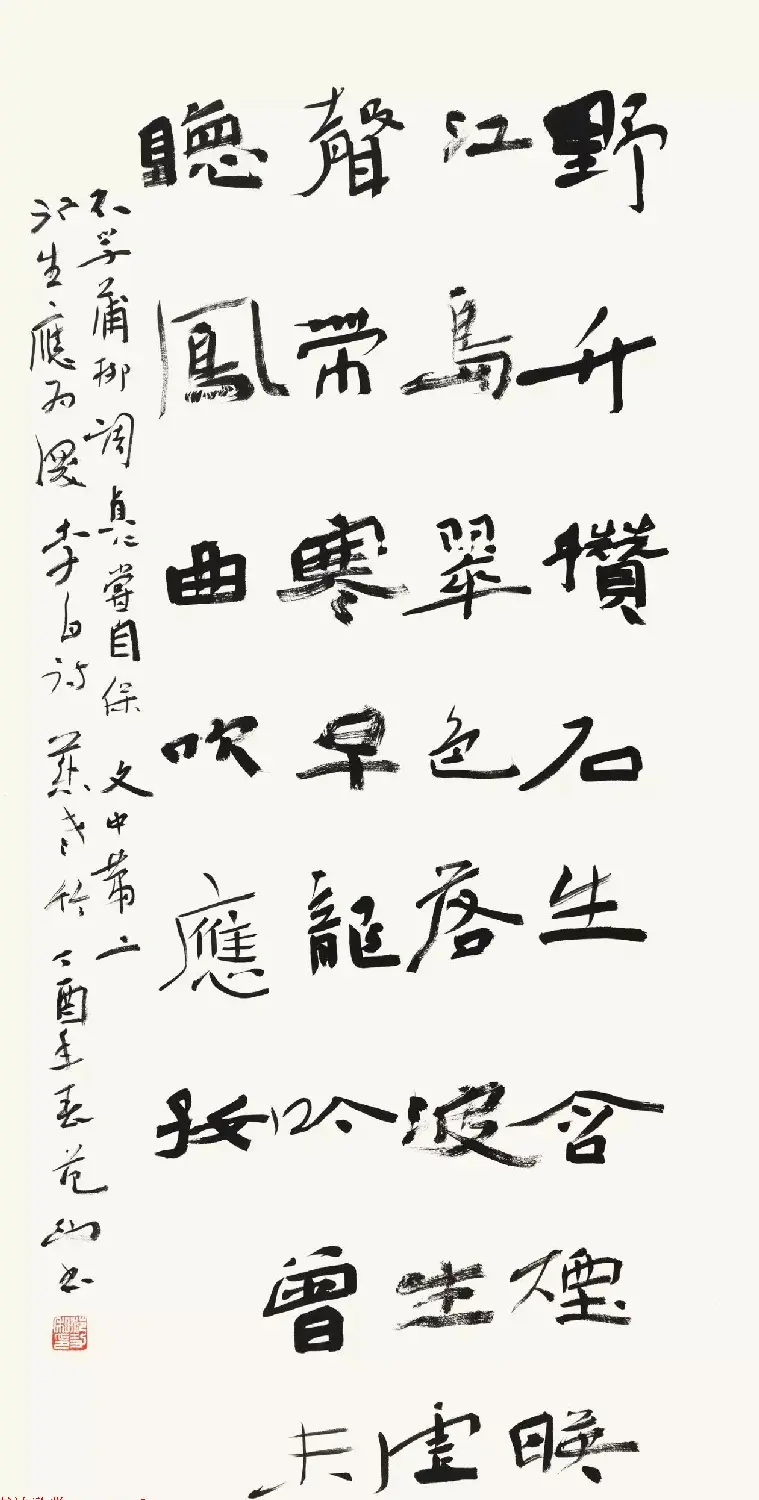 野竹攢石生含煙映
江島翠色落波生虛
聲帶寒早龍吟曾未
聽鳳曲吹應好
不學蒲柳調貞心嘗自保 文中第二
行生應為深 李白詩 慈姥竹 丁酉年春 范書